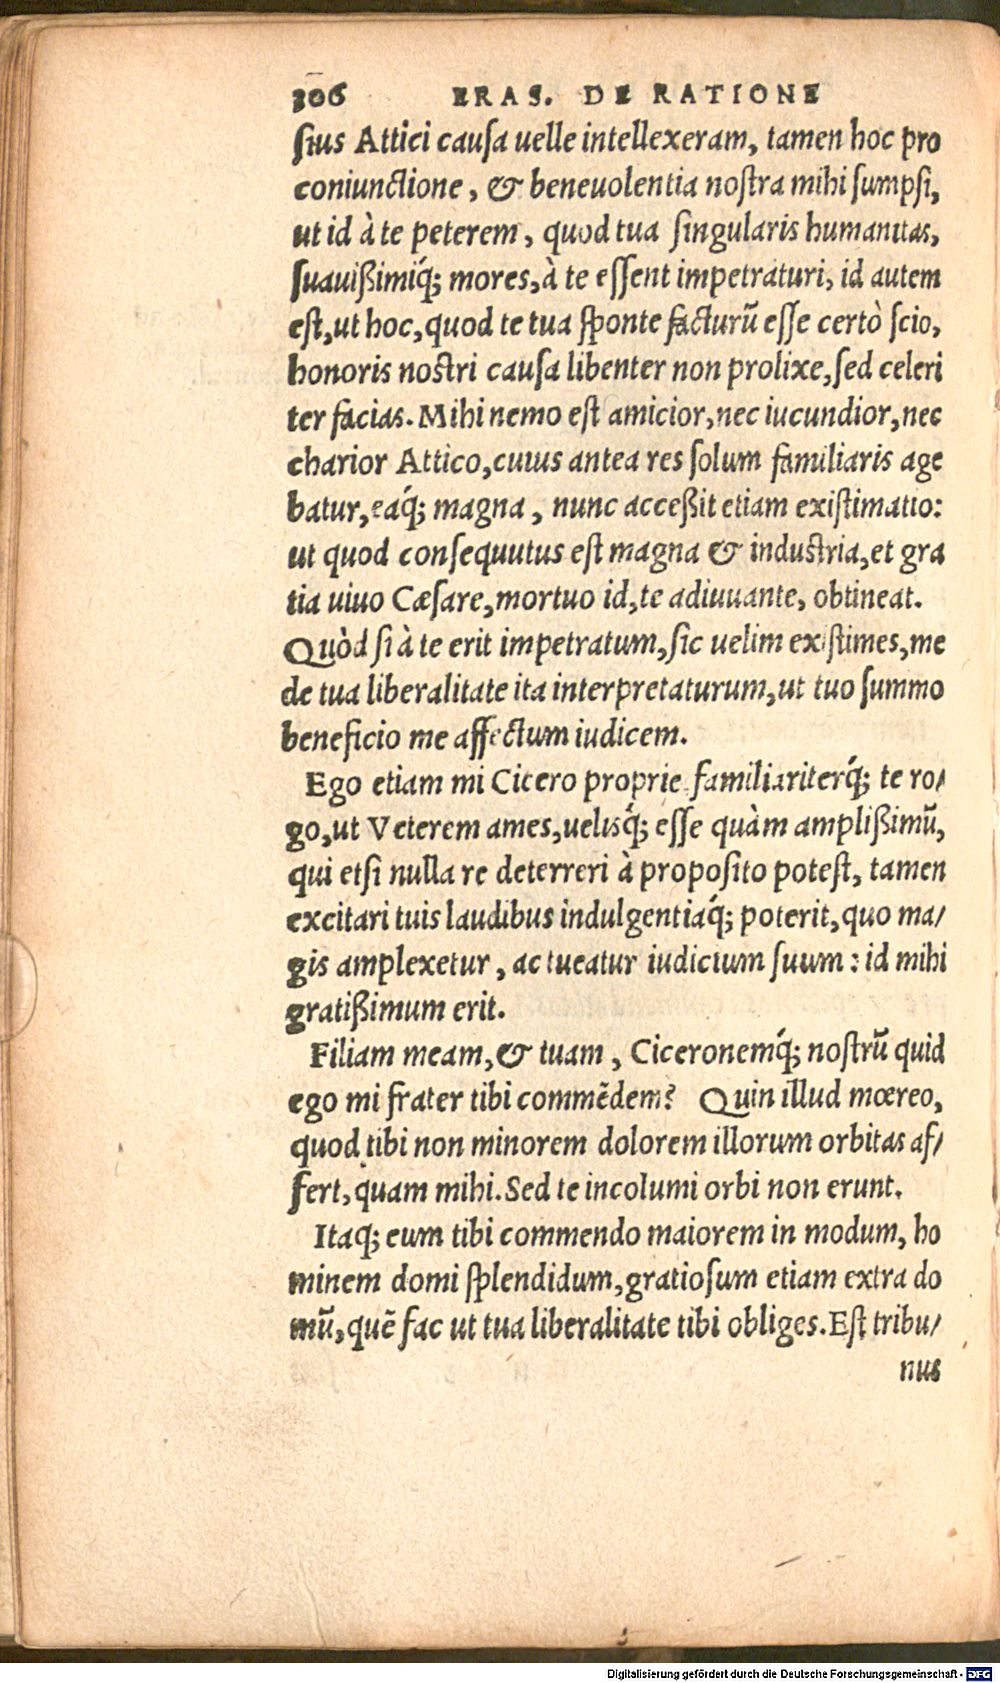 306 ERAS. DE RATIONE
sius Attici causa uelle intellexeram, tamen hoc pro
coniunctione, & beneuolentia nostra mihi sumpsi,
ut id à te peterem, quod tua singularis humanitas,
suauißimiq́; mores, à te essent impetraturi, id autem
est, ut hoc, quod te tua sponte facturū esse certò scio,
honoris nostri causa libenter non prolixe, sed celeri
ter facias. Mihi nemo est amicior, nec iucundior, nec
charior Attico, cuius antea res solum familiaris age
batur, eaq́; magna, nunc acceßit etiam existimatio:
ut quod consequutus est magna & industria, et gra
tia uiuo Cæsare, mortuo id, te adiuuante, obtineat.
Quòd si à te erit impetratum, sic uelim existimes, me
de tua liberalitate ita interpretaturum, ut tuo summo
beneficio me affectum iudicem.
Ego etiam mi Cicero proprie familiariterq́; te ro/
go, ut Veterem ames, uelisq́; esse quàm amplißimū,
qui etsi nulla re deterreri à proposito potest, tamen
excitari tuis laudibus indulgentiaq́; poterit, quo ma/
gis amplexetur, ac tueatur iudicium suum: id mihi
gratißimum erit.
Filiam meam, & tuam, Ciceronemq́; nostrū quid
ego mi frater tibi commēdem? Quin illud mœreo,
quod tibi non minorem dolorem illorum orbitas af/
fert, quam mihi. Sed te incolumi orbi non erunt.
Itaq; eum tibi commendo maiorem in modum, ho
minem domi splendidum, gratiosum etiam extra do
mū, quē fac ut tua liberalitate tibi obliges. Est tribu/
nus
Digitalisierung gefördert durch die Deutsche Forschungsgemeinschaft - DFG